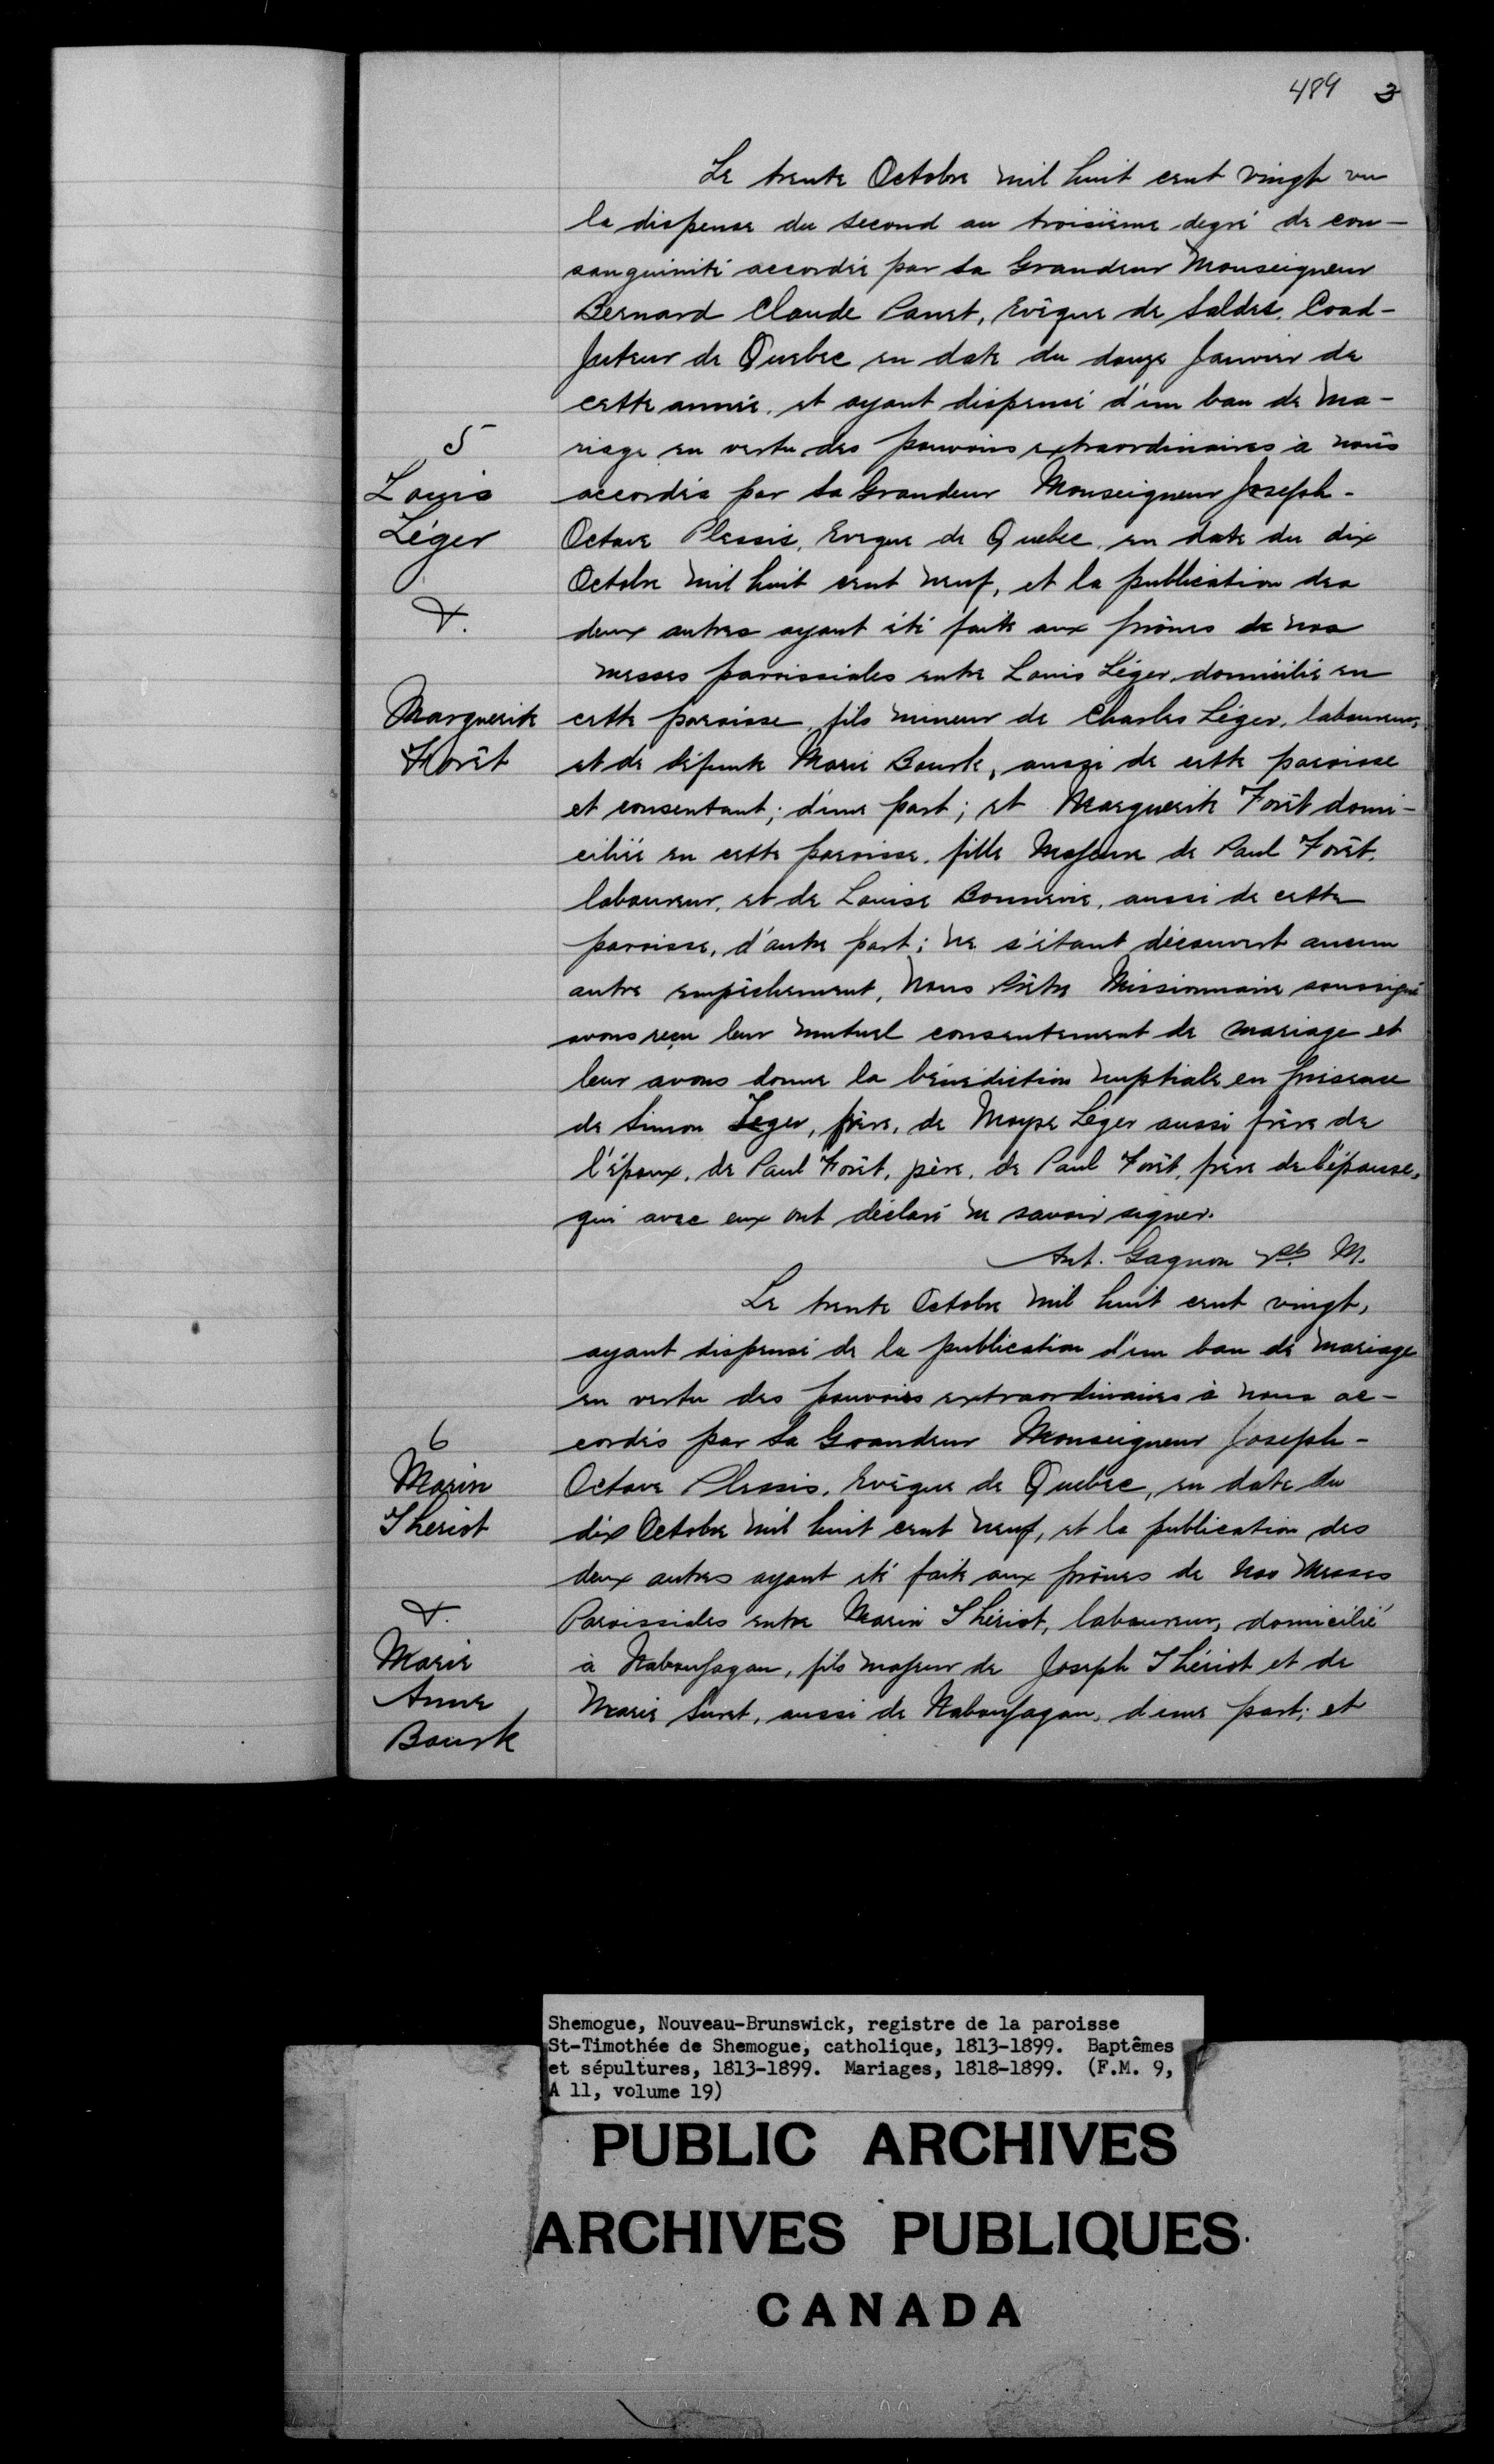 489 3
Le trente Octobre mil huit cent vingt vu
la dispense du second au troisième degré de con-
sanguinité accordée par Sa Grandeur Monseigneur
Bernard Claude Panet, Evêque de Saldes, Coad-
juteur de Quebec en date du douze Janvier de
cette année, et ayant dispensé d'un ban de ma-
5
riage en vertu des pouvoirs extraordinaires à nous
Louis
accordés par Sa Grandeur Monseigneur Joseph-
Léger
Octave Plessis, Eveque de Quebec, en date du dix
Octobre mil huit cent neuf, et la publication des
&.
deux autres ayant été faite aux prônes de nos
messes paroissiales entre Louis Léger, domicilié en
Marguerite
cette paroisse, fils mineur de Charles Léger, laboureur,
Forêt
et de défunte Marie Bourk, aussi de cette paroisse
et consentant; d'une part; et Marguerite Forêt domi-
ciliée en cette paroisse, fille Majeure de Paul Forêt,
laboureur, et de Louise Bonnevie, aussi de cette
paroisse, d'autre part; ne s'étant découvert aucun
autre empêchement, Nous Prêtre Missionnaire soussigné
avons reçu leur mutuel consentement de mariage et
leur avons donne la bénédiction nuptiale en présence
de Simon Leger, frère, de Moyse Léger aussi frère de
l'époux, de Paul Forêt, père, de Paul Forêt, frère de l'épouse,
qui avec eux ont déclaré ne savoir signer.
Ant. Gagnon M.
Le trente Octobre mil huit cent vingt,
ayant dispensé de la publication d'un ban de mariage
en vertu des pouvoirs extraordinaires à nous ac-
6
cordés par Sa Grandeur Monseigneur Joseph-
Marin
Octave Plessis, Evêque de Quebec, en date du
Thériot
dix Octobre mil huit cent neuf, et la publication des
deux autres ayant été faite aux prônes de nos Messes
&.
Paroissiales entre Marin Thériot, laboureur, domicilié
Marie
à Naboujagan, fils majeur de Joseph Thériot et de
Anne
Marie Suret, aussi de Naboujagan, d'une part; et
Bourk
Shemogue, Nouveau-Brunswick, registre de la paroisse
St-Timothée de Shemogue, catholique, 1813-1899. Baptêmes
et sépultures, 1813-1899. Mariages, 1818-1899. (F.M. 9,
A 11, volume 19)
PUBLIC ARCHIVES
ARCHIVES PUBLIQUES
CANADA